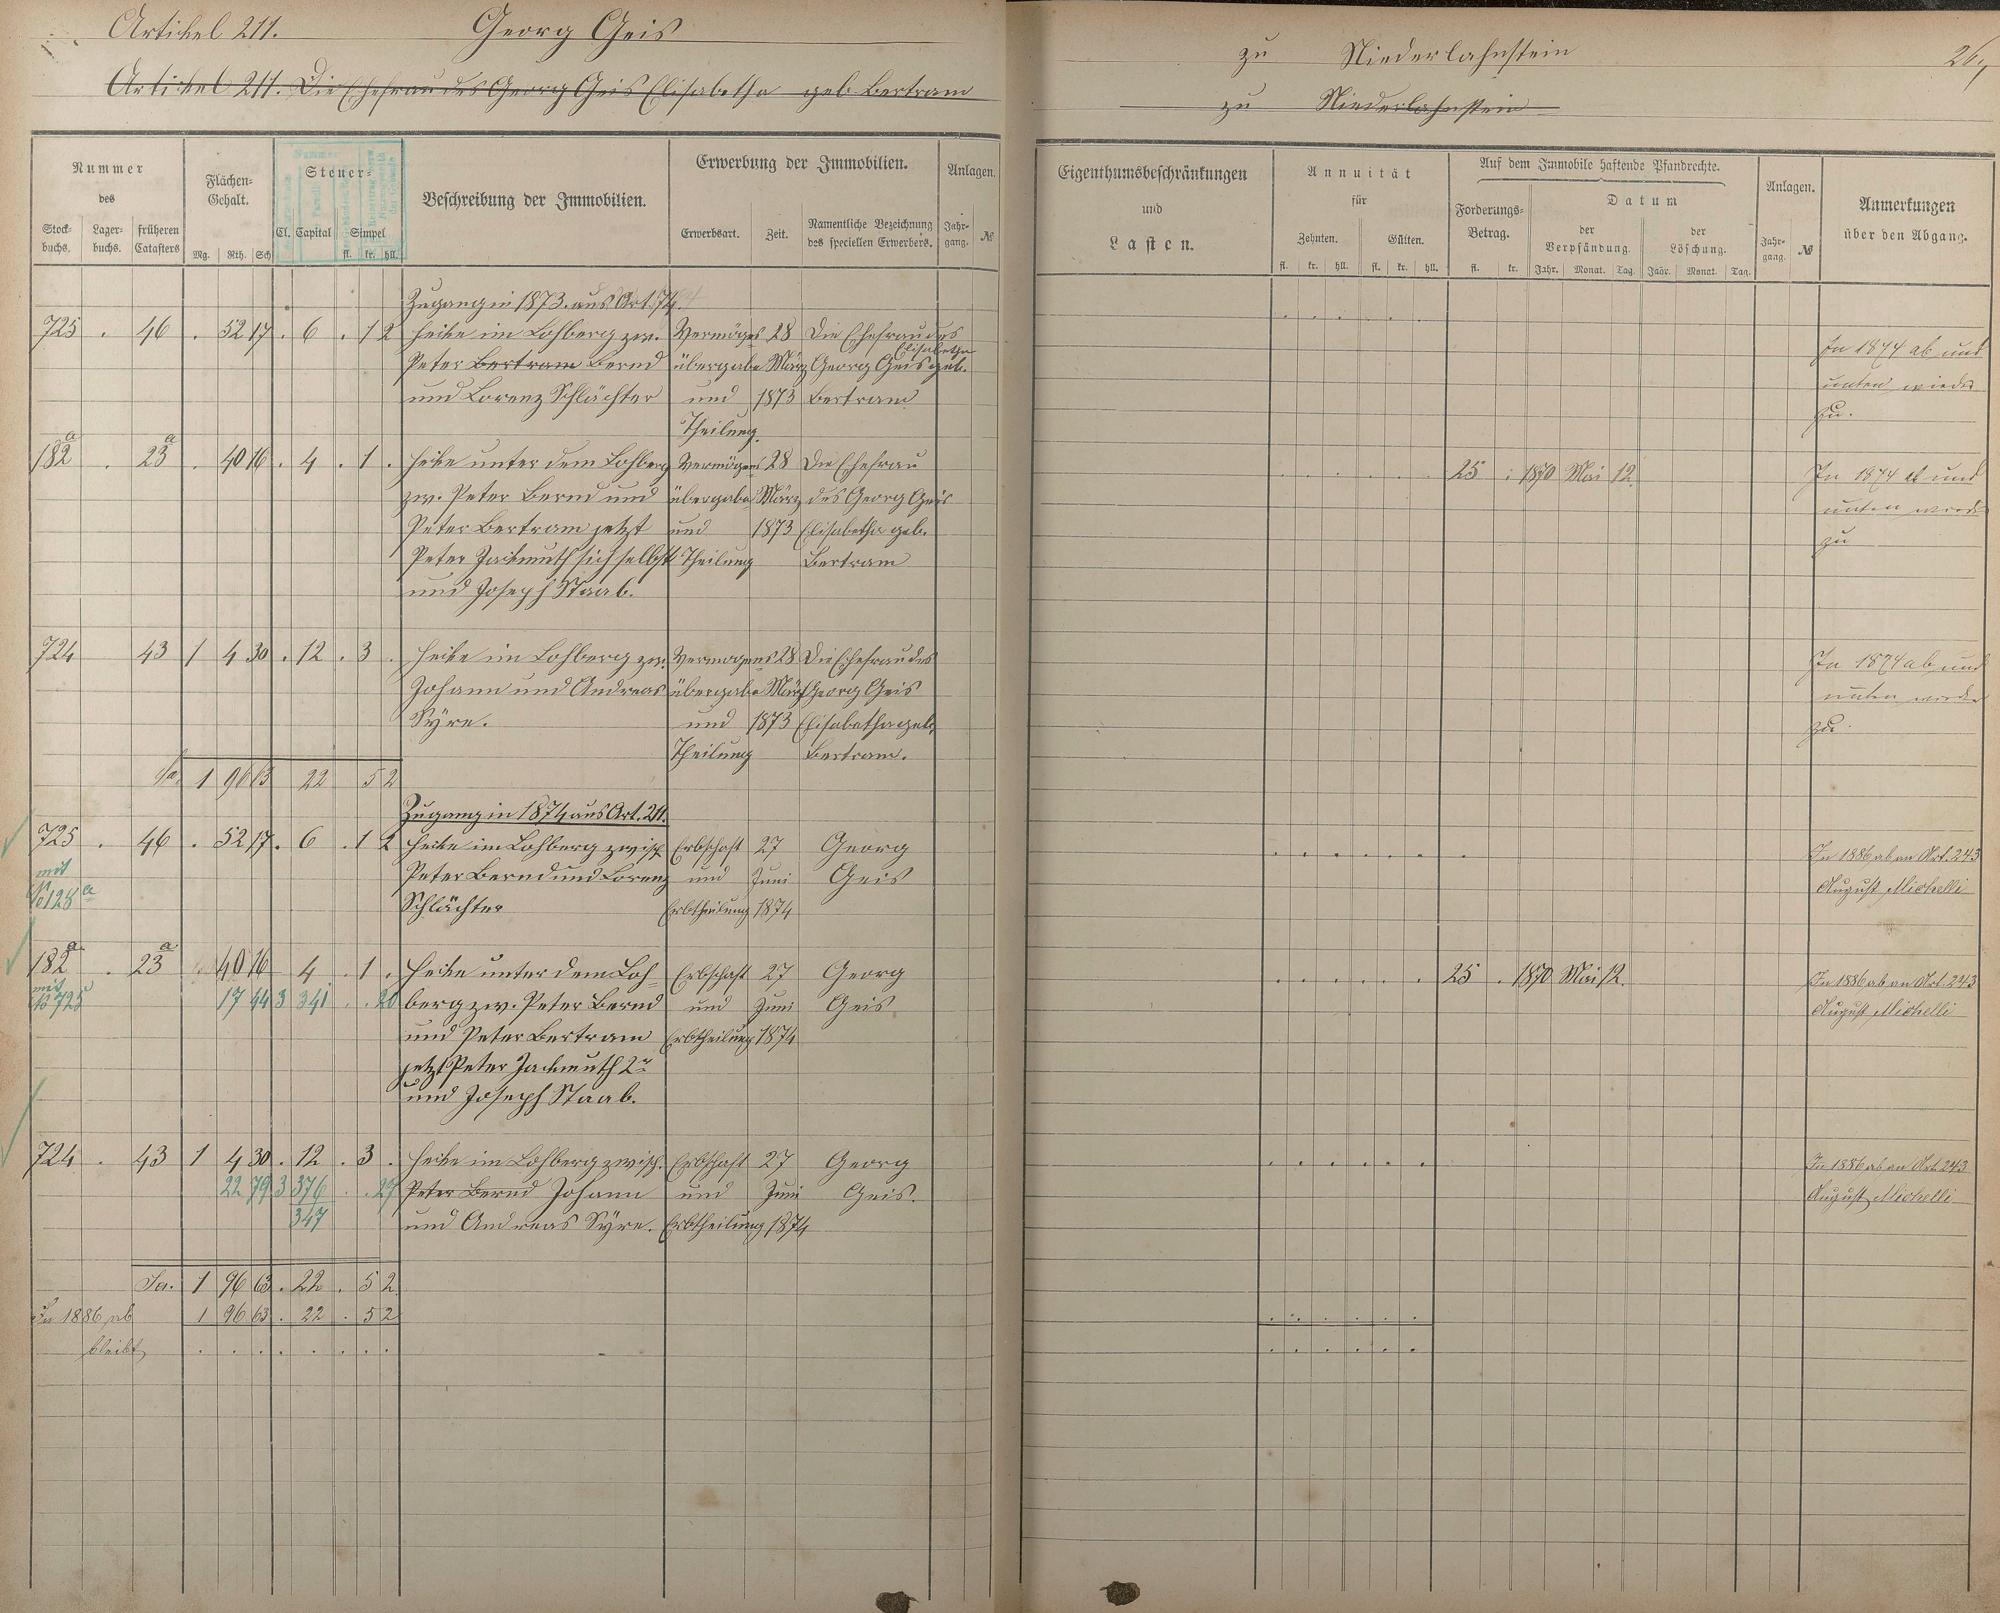 Artikel 211. Georg Geis
Artikel 211. Die Ehefrau des Georg Geis Elisabetha geb. Bertram
Nummer des
Stock-buchs. Lager-buchs. früheren Catasters
Flächen-Gehalt.
Mg. Rth. Sch
Steuer-
Cl. Capital Simpel
fl. kr. hll.
Beschreibung der Immobilien.
Erwerbung der Immobilien.
Erwerbsart. Zeit. Namentliche Bezeichnung des speciellen Erwerbers.
Anlagen.
Jahr-gang. №
Zugang in 1873. aus Art. 74.
725 . 46 . 52 17 . 6 . 1 2 Hecke im Lohberg zw. Vermögens 28 Die Ehefrau des
Elisabetha
Peter Bertram Bernd übergabe März Georg Geis geb.
und Lorenz Schlächter und 1873 Bertram
Theilung.
182a . 23a . 40 16 . 4 . 1 . Hecke unter dem Lohberg Vermögens 28 Die Ehefrau
zw. Peter Bernd und übergabe März des Georg Geis
Peter Bertram jetzt und 1873 Elisabetha geb.
Peter Jackmuth sich selbst Theilung Bertram
und Joseph Staab.
724 43 1 4 30 . 12 . 3 . Hecke im Lohberg zw. Vermögens 28 Die Ehefrau des
Johann und Andreas übergabe März Georg Geis
Syre. und 1873 Elisabetha geb.
Theilung Bertram.
Sa. 1 96 63 22 5 2
Zugang in 1874 aus Art. 211.
725 . 46 . 52 17 . 6 . 1 2 Hecke im Lohberg zwisch. Erbschaft 27 Georg
mit Peter Bernd und Lorenz und Juni Geis
Schlächter Erbtheilung 1874
182a . 23a 40 16 4 . 1 . Hecke unter dem Loh= Erbschaft 27 Georg
mit 17 44 3 341 . . 20 berg zw. Peter Bernd und Juni Geis
№ 725
und Peter Bertram Erbtheilung 1874
jetzt Peter Jackmuth 2r
und Joseph Staab.
724 . 43 1 4 30 . 12 . 3 . Hecke im Lohberg zwisch. Erbschaft 27 Georg
22 79 3 376 . . 27 Peter Bernd Johann und Juni Geis.
347 und Andreas Syre. Erbtheilung 1874
Sa. 1 96 63 . 22 . 5 2
In 1886 ab 1 96 63 . 22 . 5 2
bleibt . . . . . . . .
zu Niederlahnstein
zu Niederlahnstein
Eigenthumsbeschränkungen
und
Lasten.
Annuität
für
Zehnten. Gülten.
fl. kr. hll. fl. kr. hll.
Auf dem Immobile haftende Pfandrechte.
Forderungs-Betrag.
fl. kr.
Datum
der Verpfändung. der Löschung.
Jahr. Monat. Tag. Jahr. Monat. Tag.
Anlagen.
Jahr-gang. №
Anmerkungen
über den Abgang.
In 1874 ab und
unten wieder
zu.
25 . 1870 Mai 12. In 1874 ab und
unten wieder
zu
In 1874 ab und
unten wieder
zu.
In 1886 ab an Art. 243
August Michelli
25 . 1870 Mai 12. In 1886 ab an Art. 243
August Michelli
In 1886 ab an Art. 243
August Michelli